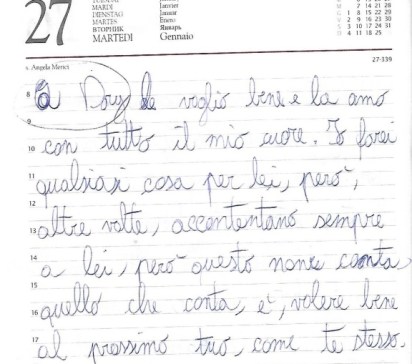 27
MARDI
DIENSTAG
MARTES
ВТОРНИК
MARTEDÌ
Janvier
Januar
Enero
Январь
Gennaio
7 14 21 28
G 1 8 15 22 29
V 2 9 16 23 30
S 3 10 17 24 31
D 4 11 18 25
s. Angela Merici
27-339
8 a Dory le voglio bene e la amo
9
10 con tutto il mio cuore. Io farei
11 qualsiasi cosa per lei, però,
12
13 altre volte, accontentano sempre
14 a lei, però questo non conta,
15 quello che conta, è, volere bene
16
17 al prossimo tuo, come te stesso.